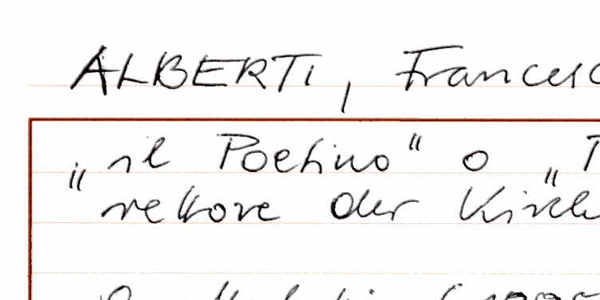 ALBERTI, Francesc
„il Poetino“ o „
rettore der Kirche